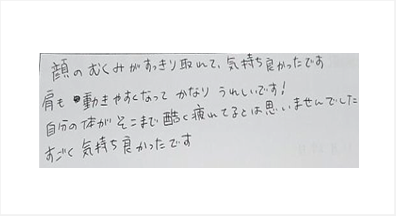 顔のむくみがすっきり取れて、気持ち良かったです
肩も動きやすくなってかなりうれしいです!
自分の体がそこまで酷く疲れてるとは思いませんでした
すごく気持ち良かったです